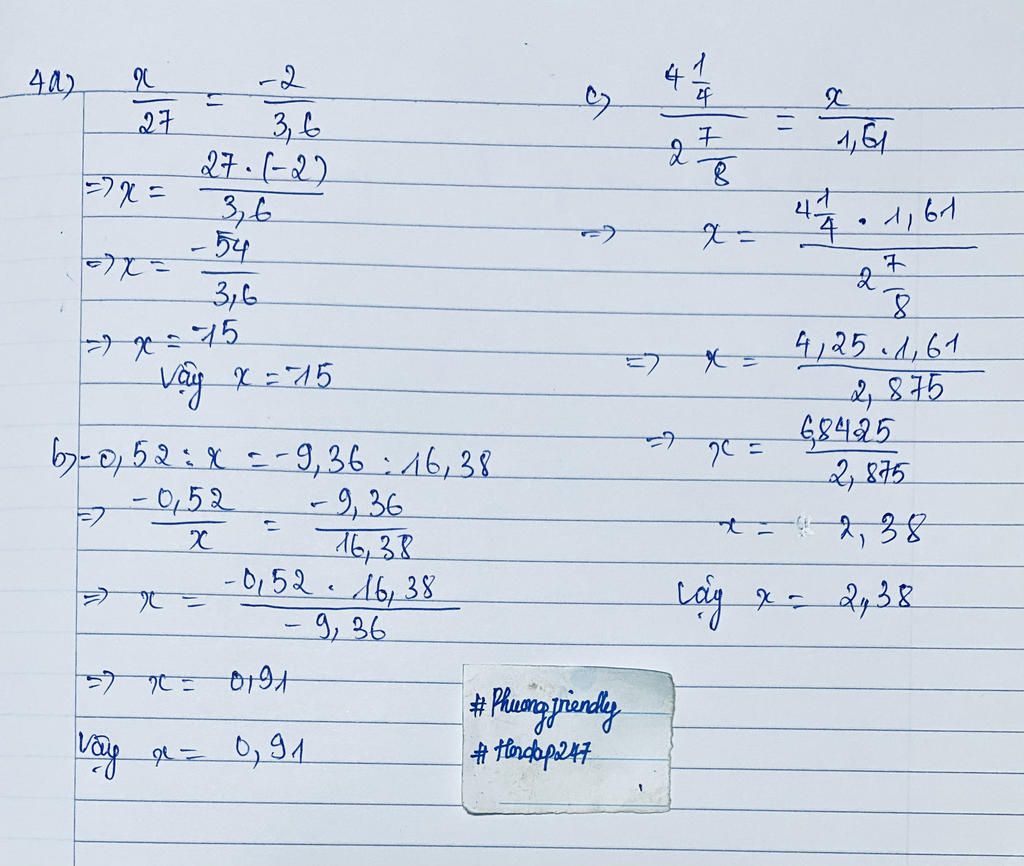 4a) x/27 = -2/3,6
=> x = 27.(-2)/3,6
=> x = -54/3,6
=> x = -15
Vậy x = -15
b) -0,52 : x = -9,36 : 16,38
=> -0,52/x = -9,36/16,38
=> x = -0,52 . 16,38/-9,36
=> x = 0,91
Vậy x = 0,91
c) 4 1/4 / 2 7/8 = x/1,61
=> x = 4 1/4 . 1,61 / 2 7/8
=> x = 4,25 . 1,61/2,875
=> x = 6,8425/2,875
x = 2,38
Vậy x = 2,38
# Phuongfriendly
# Hoidap247